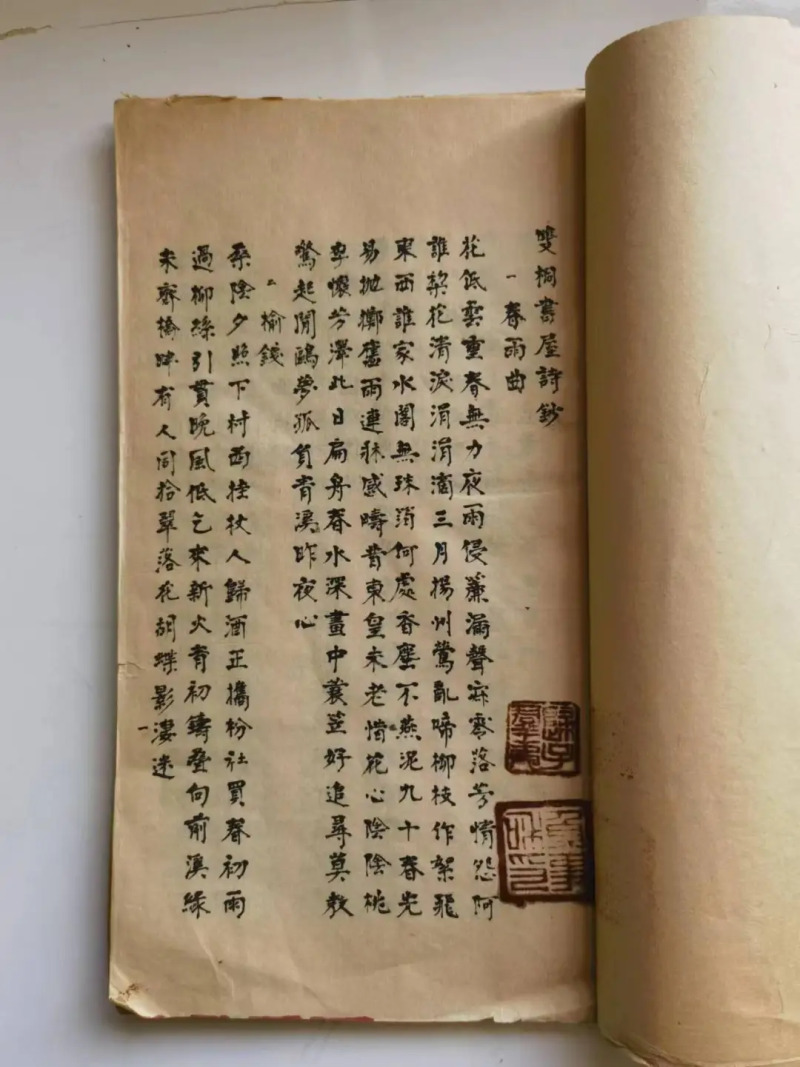 雙桐書屋詩鈔
一春雨曲
花低雲重春無力夜雨侵簾漏聲寂零落芳情怨阿
誰梨花清淚涓涓滴三月揚州鶯亂啼柳枝作絮飛
東西誰家水閣無珠箔何處香塵不燕泥九十春光
易拋擲舊雨連牀感疇昔東皇未老惜花心陰陰桃
李懷芳澤此日扁舟春水深畫中蓑笠好追尋莫教
驚起閒鷗夢孤負青溪昨夜心
榆錢
桑陰夕照下村西拄杖人歸酒正攜枌社買春初雨
過柳絲引貫晚風低乞來新火青初鑄疊向前溪綠
未齊橋畔有人同拾翠落花胡蝶影淒迷